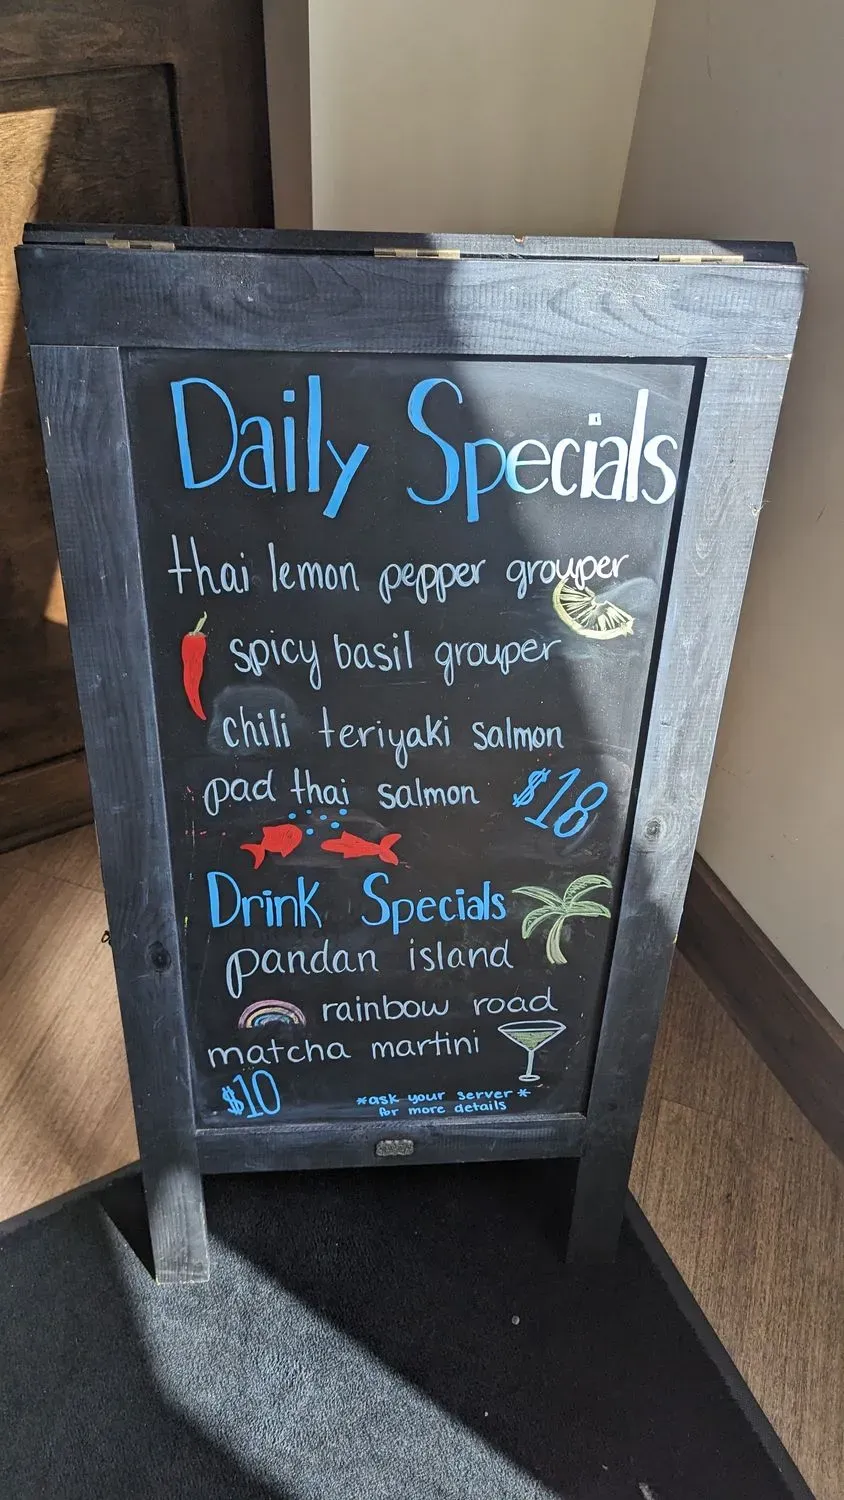 Daily Specials
thai lemon pepper grouper
spicy basil grouper
chili teriyaki salmon
pad thai salmon $18
Drink Specials
pandan island
rainbow road
matcha martini
$10 *ask your server*
for more details